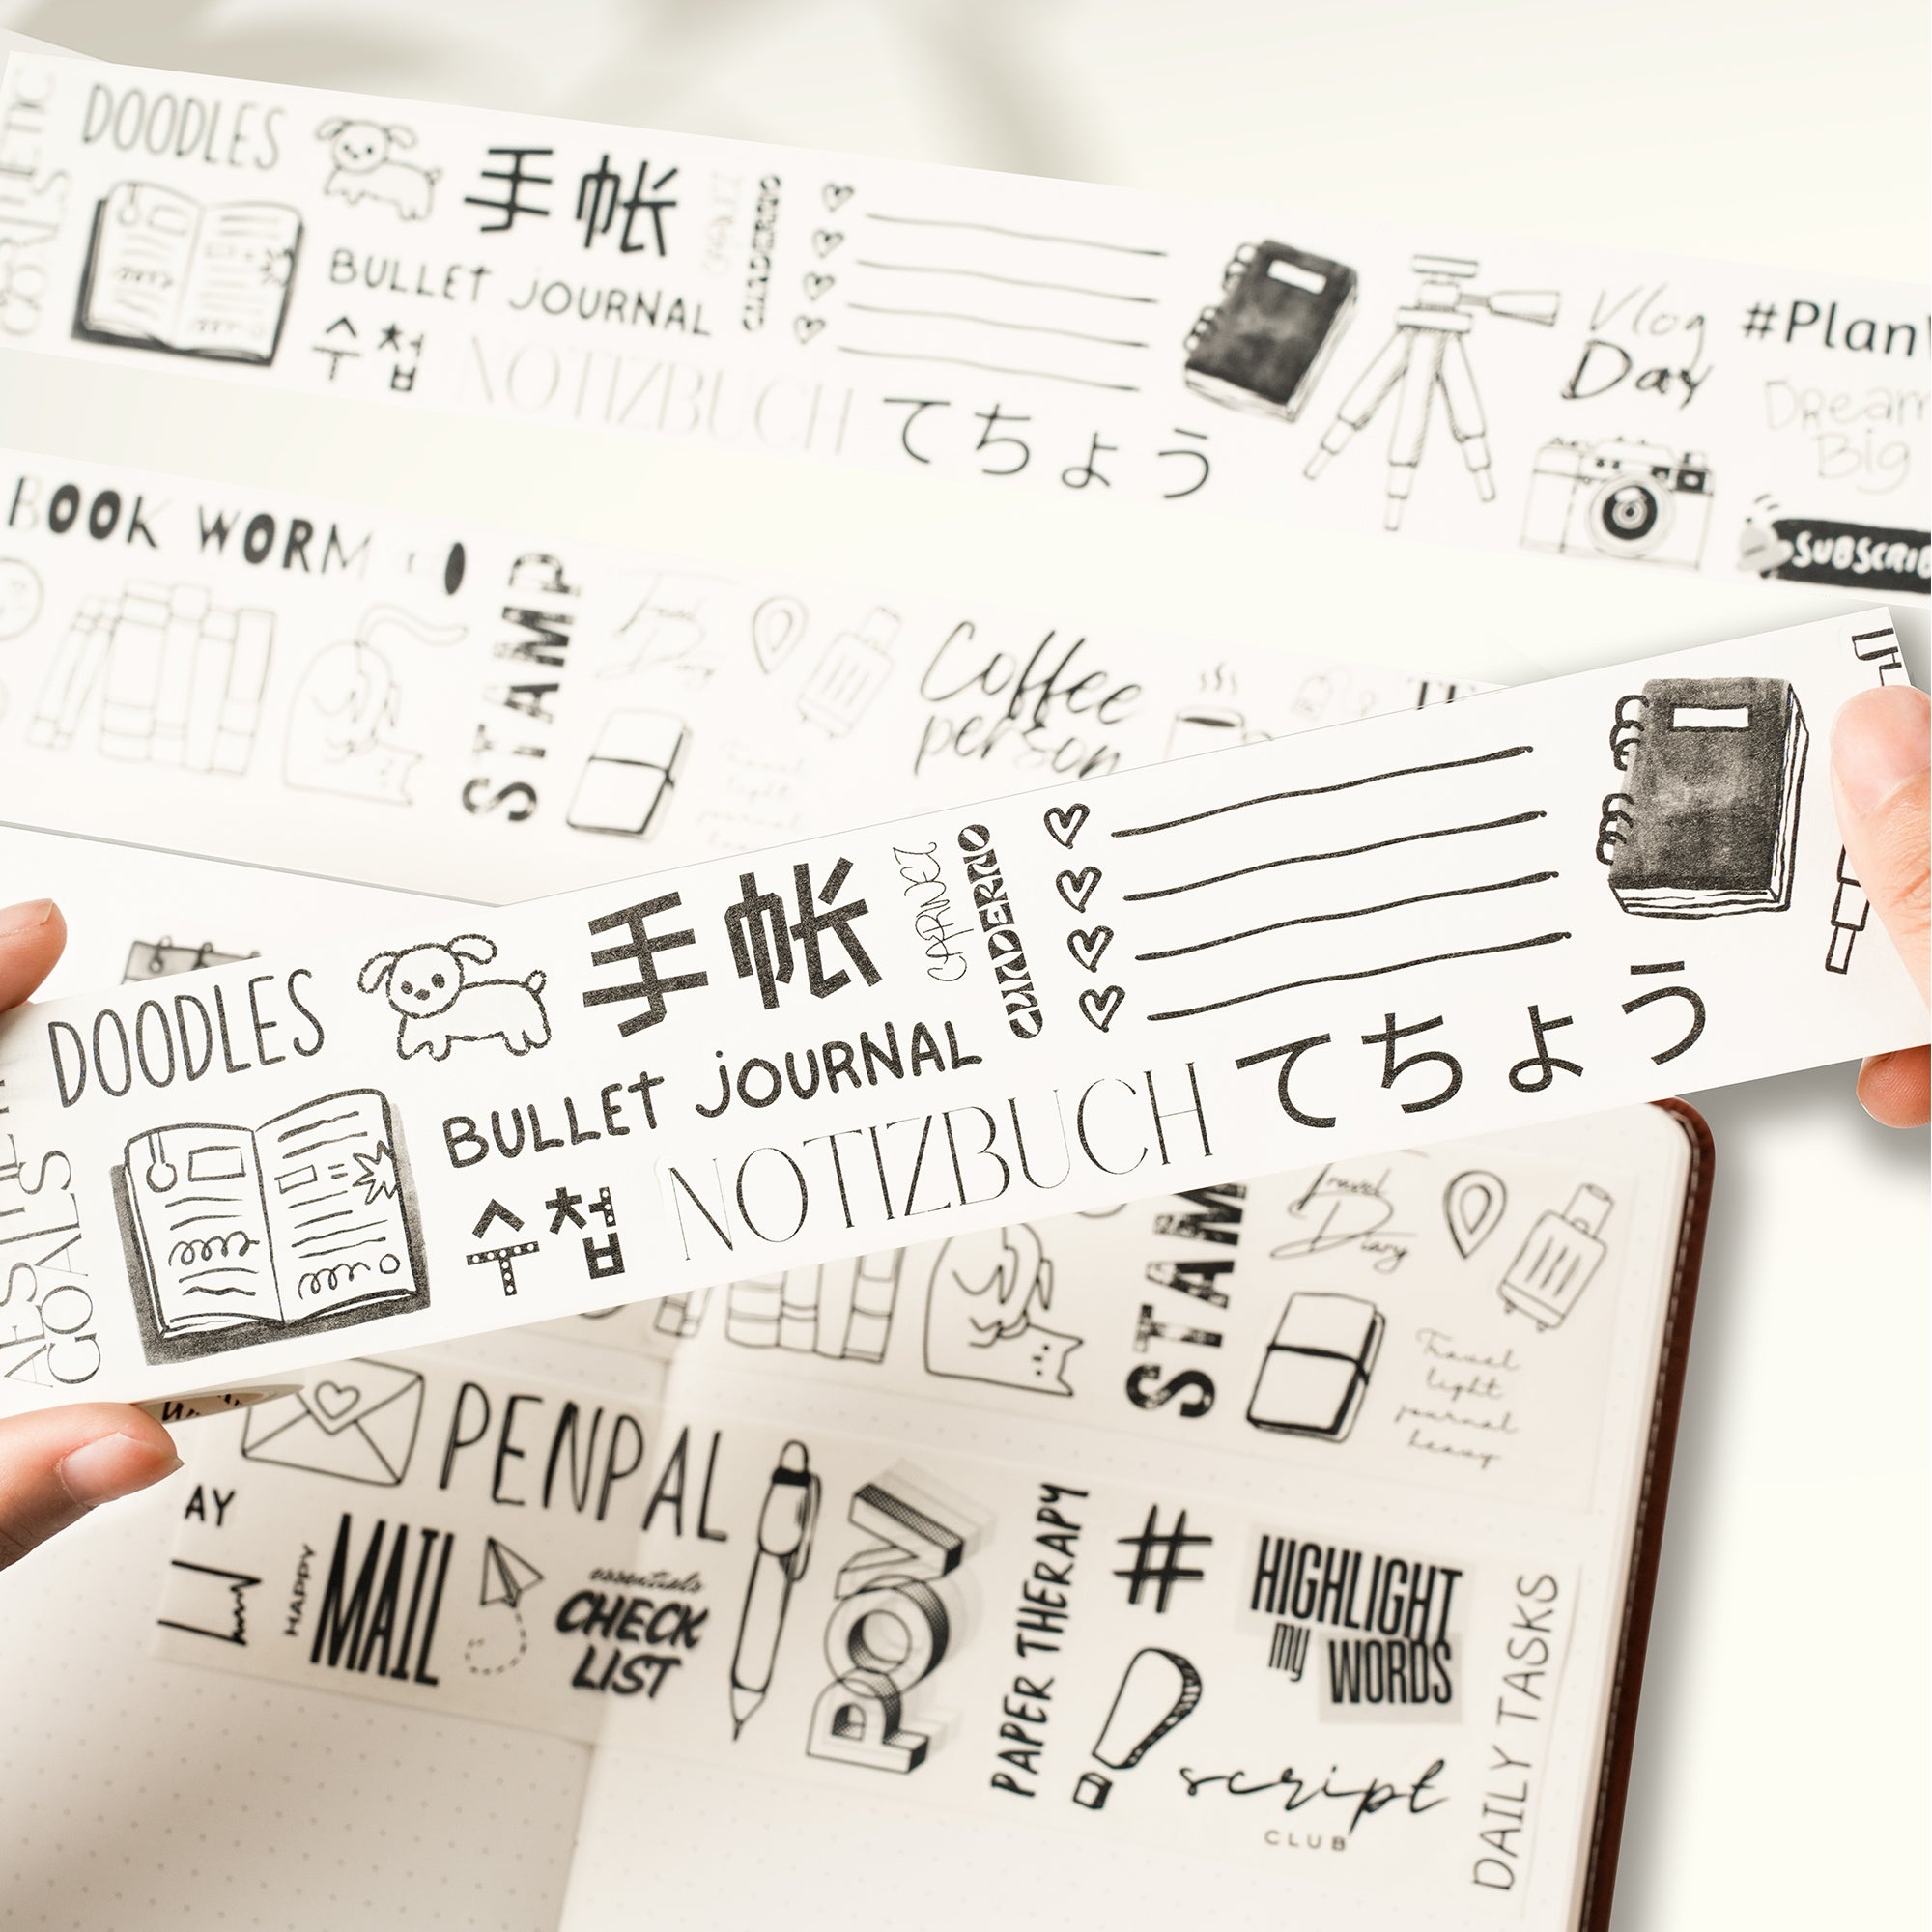 AESTHETIC
GOALS
DOODLES
手帐
BULLET JOURNAL
CARNEZ
CUADERNO
수첩
NOTIZBUCH
てちょう
Vlog
Day
#Plan
Dream
Big
SUBSCRIB
BOOK WORM
STAMP
Travel
Diary
Coffee
person
DOODLES
手帐
CARNEZ
CUADERNO
BULLET JOURNAL
수첩
NOTIZBUCH
てちょう
GOALS
STAM
Travel
Diary
Travel
light
journal
heavy
PENPAL
AY
HAPPY
MAIL
essentials
CHECK
LIST
POV
PAPER THERAPY
#
HIGHLIGHT
my WORDS
script
CLUB
DAILY TASKS